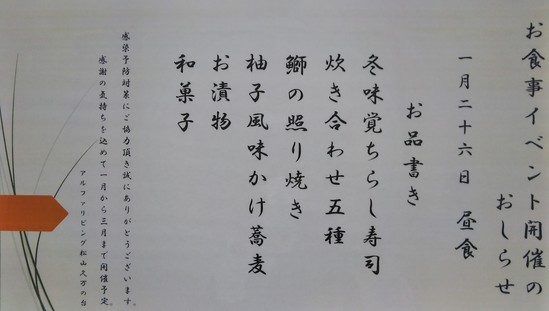 お食事イベント開催の
おしらせ
一月二十六日 昼食
お品書き
冬味覚ちらし寿司
炊き合わせ五種
鰤の照り焼き
柚子風味かけ蕎麦
お漬物
和菓子
感染予防対策にご協力頂き誠にありがとうございます。
感謝の気持ちを込めて一月から三月まで開催予定。
アルファリビング松山久万の台